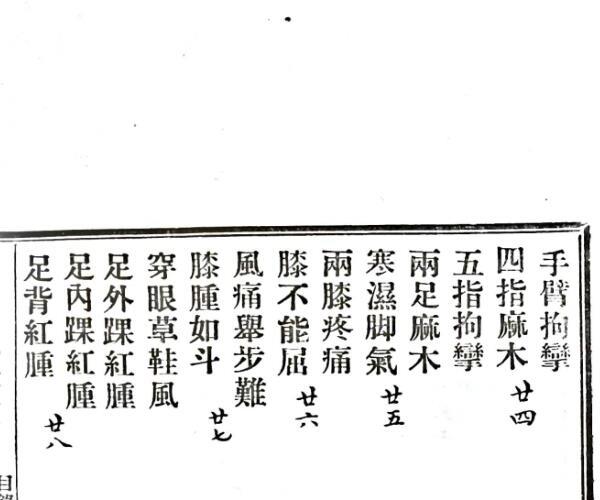 手臂拘攣
四指麻木 廿四
五指拘攣
兩足麻木
寒濕脚氣 廿五
兩膝疼痛
膝不能屈 廿六
風痛舉步難
膝腫如斗 廿七
穿眼草鞋風
足外踝紅腫
足內踝紅腫
足背紅腫 廿八